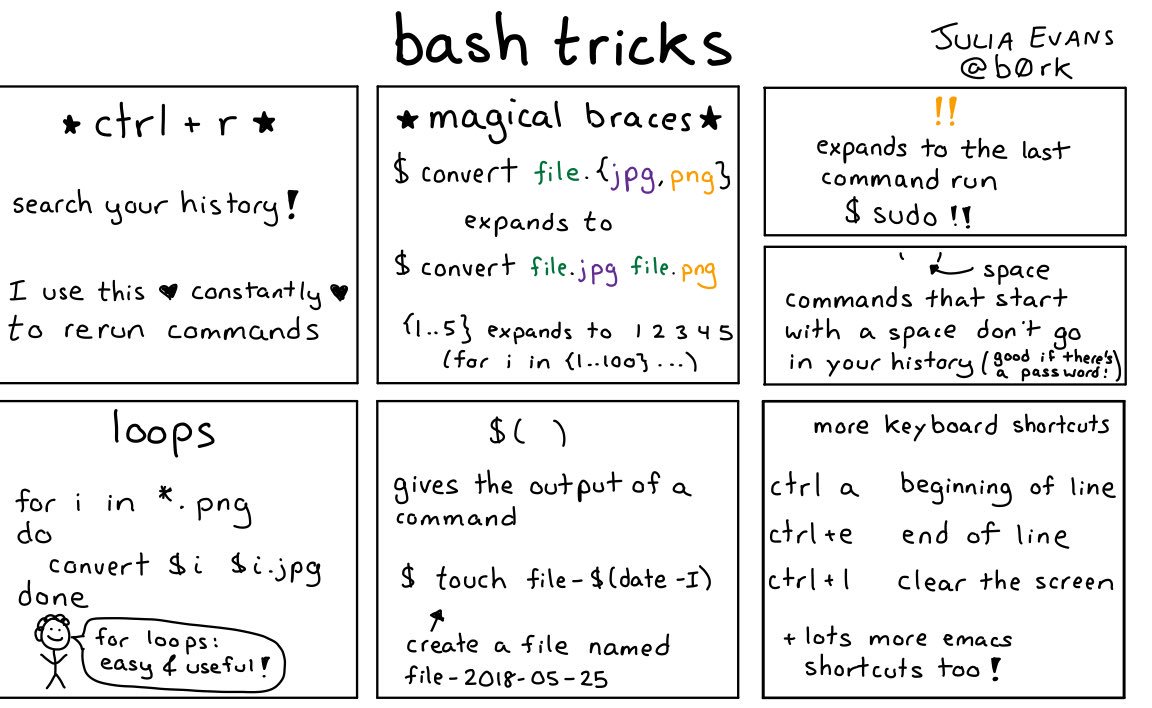 bash tricks
JULIA EVANS
@b0rk
★ ctrl + r ★
search your history!
I use this ♥ constantly ♥
to rerun commands
★ magical braces ★
$ convert file.{jpg,png}
expands to
$ convert file.jpg file.png
{1..5} expands to 1 2 3 4 5
(for i in {1..100} ...)
!!
expands to the last
command run
$ sudo !!
' ' ← space
commands that start
with a space don't go
in your history (good if there's
a password!)
loops
for i in *.png
do
convert $i $i.jpg
done
for loops:
easy & useful!
$( )
gives the output of a
command
$ touch file-$(date -I)
create a file named
file-2018-05-25
more keyboard shortcuts
ctrl a beginning of line
ctrl+e end of line
ctrl+l clear the screen
+ lots more emacs
shortcuts too!